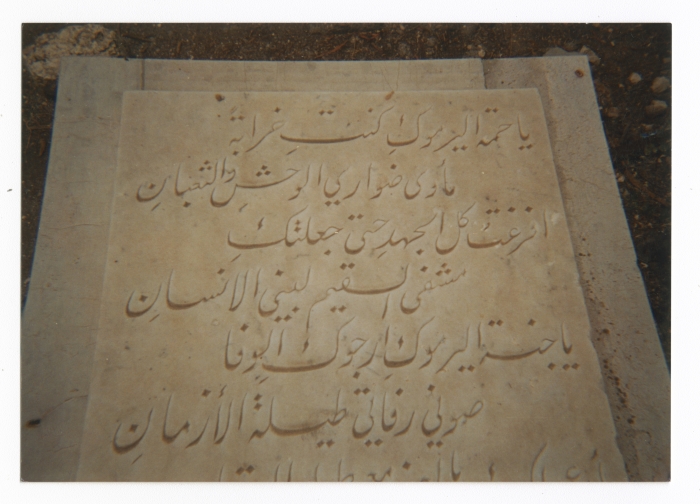 يا حمة اليرموك كنتِ خرابة
مأوى ضواري الوحشِ والثعبانِ
افرغتُ كل الجهدِ حتى جعلتكِ
مشفى السقيم لبني الانسانِ
يا جنة اليرموك ارجوك الوفا
صوني رفاتي طيلة الأزمانِ